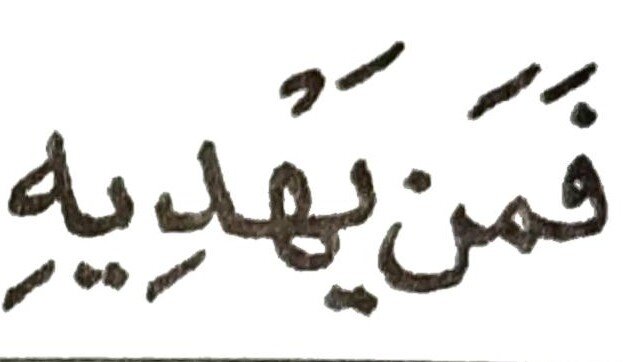 فَمَن يَهْدِيهِ